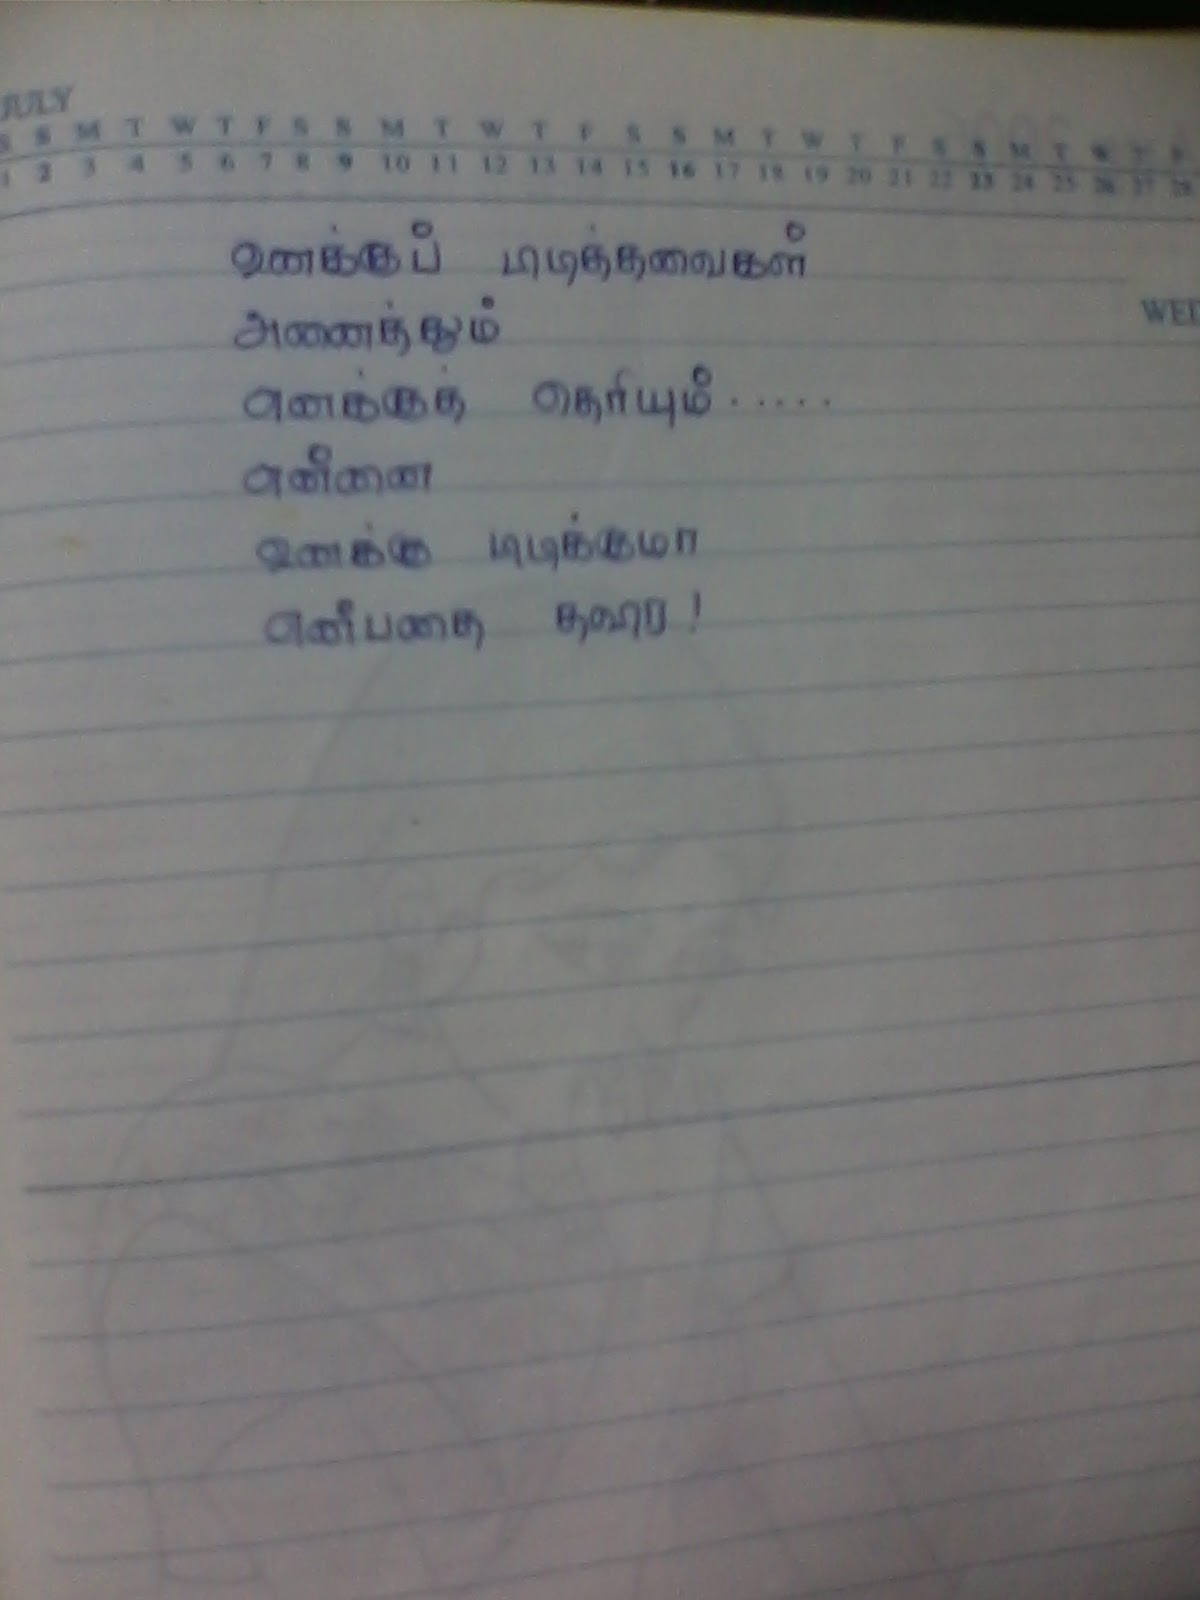 JULY
S S M T W T F S S M T W T F S S M T W T F S S M T W T F
1 2 3 4 5 6 7 8 9 10 11 12 13 14 15 16 17 18 19 20 21 22 23 24 25 26 27 28
WED
உனக்குப் பிடித்தவைகள்
அனைத்தும்
எனக்குத் தெரியும்.....
என்னை
உனக்கு பிடிக்குமா
என்பதை தவிர!